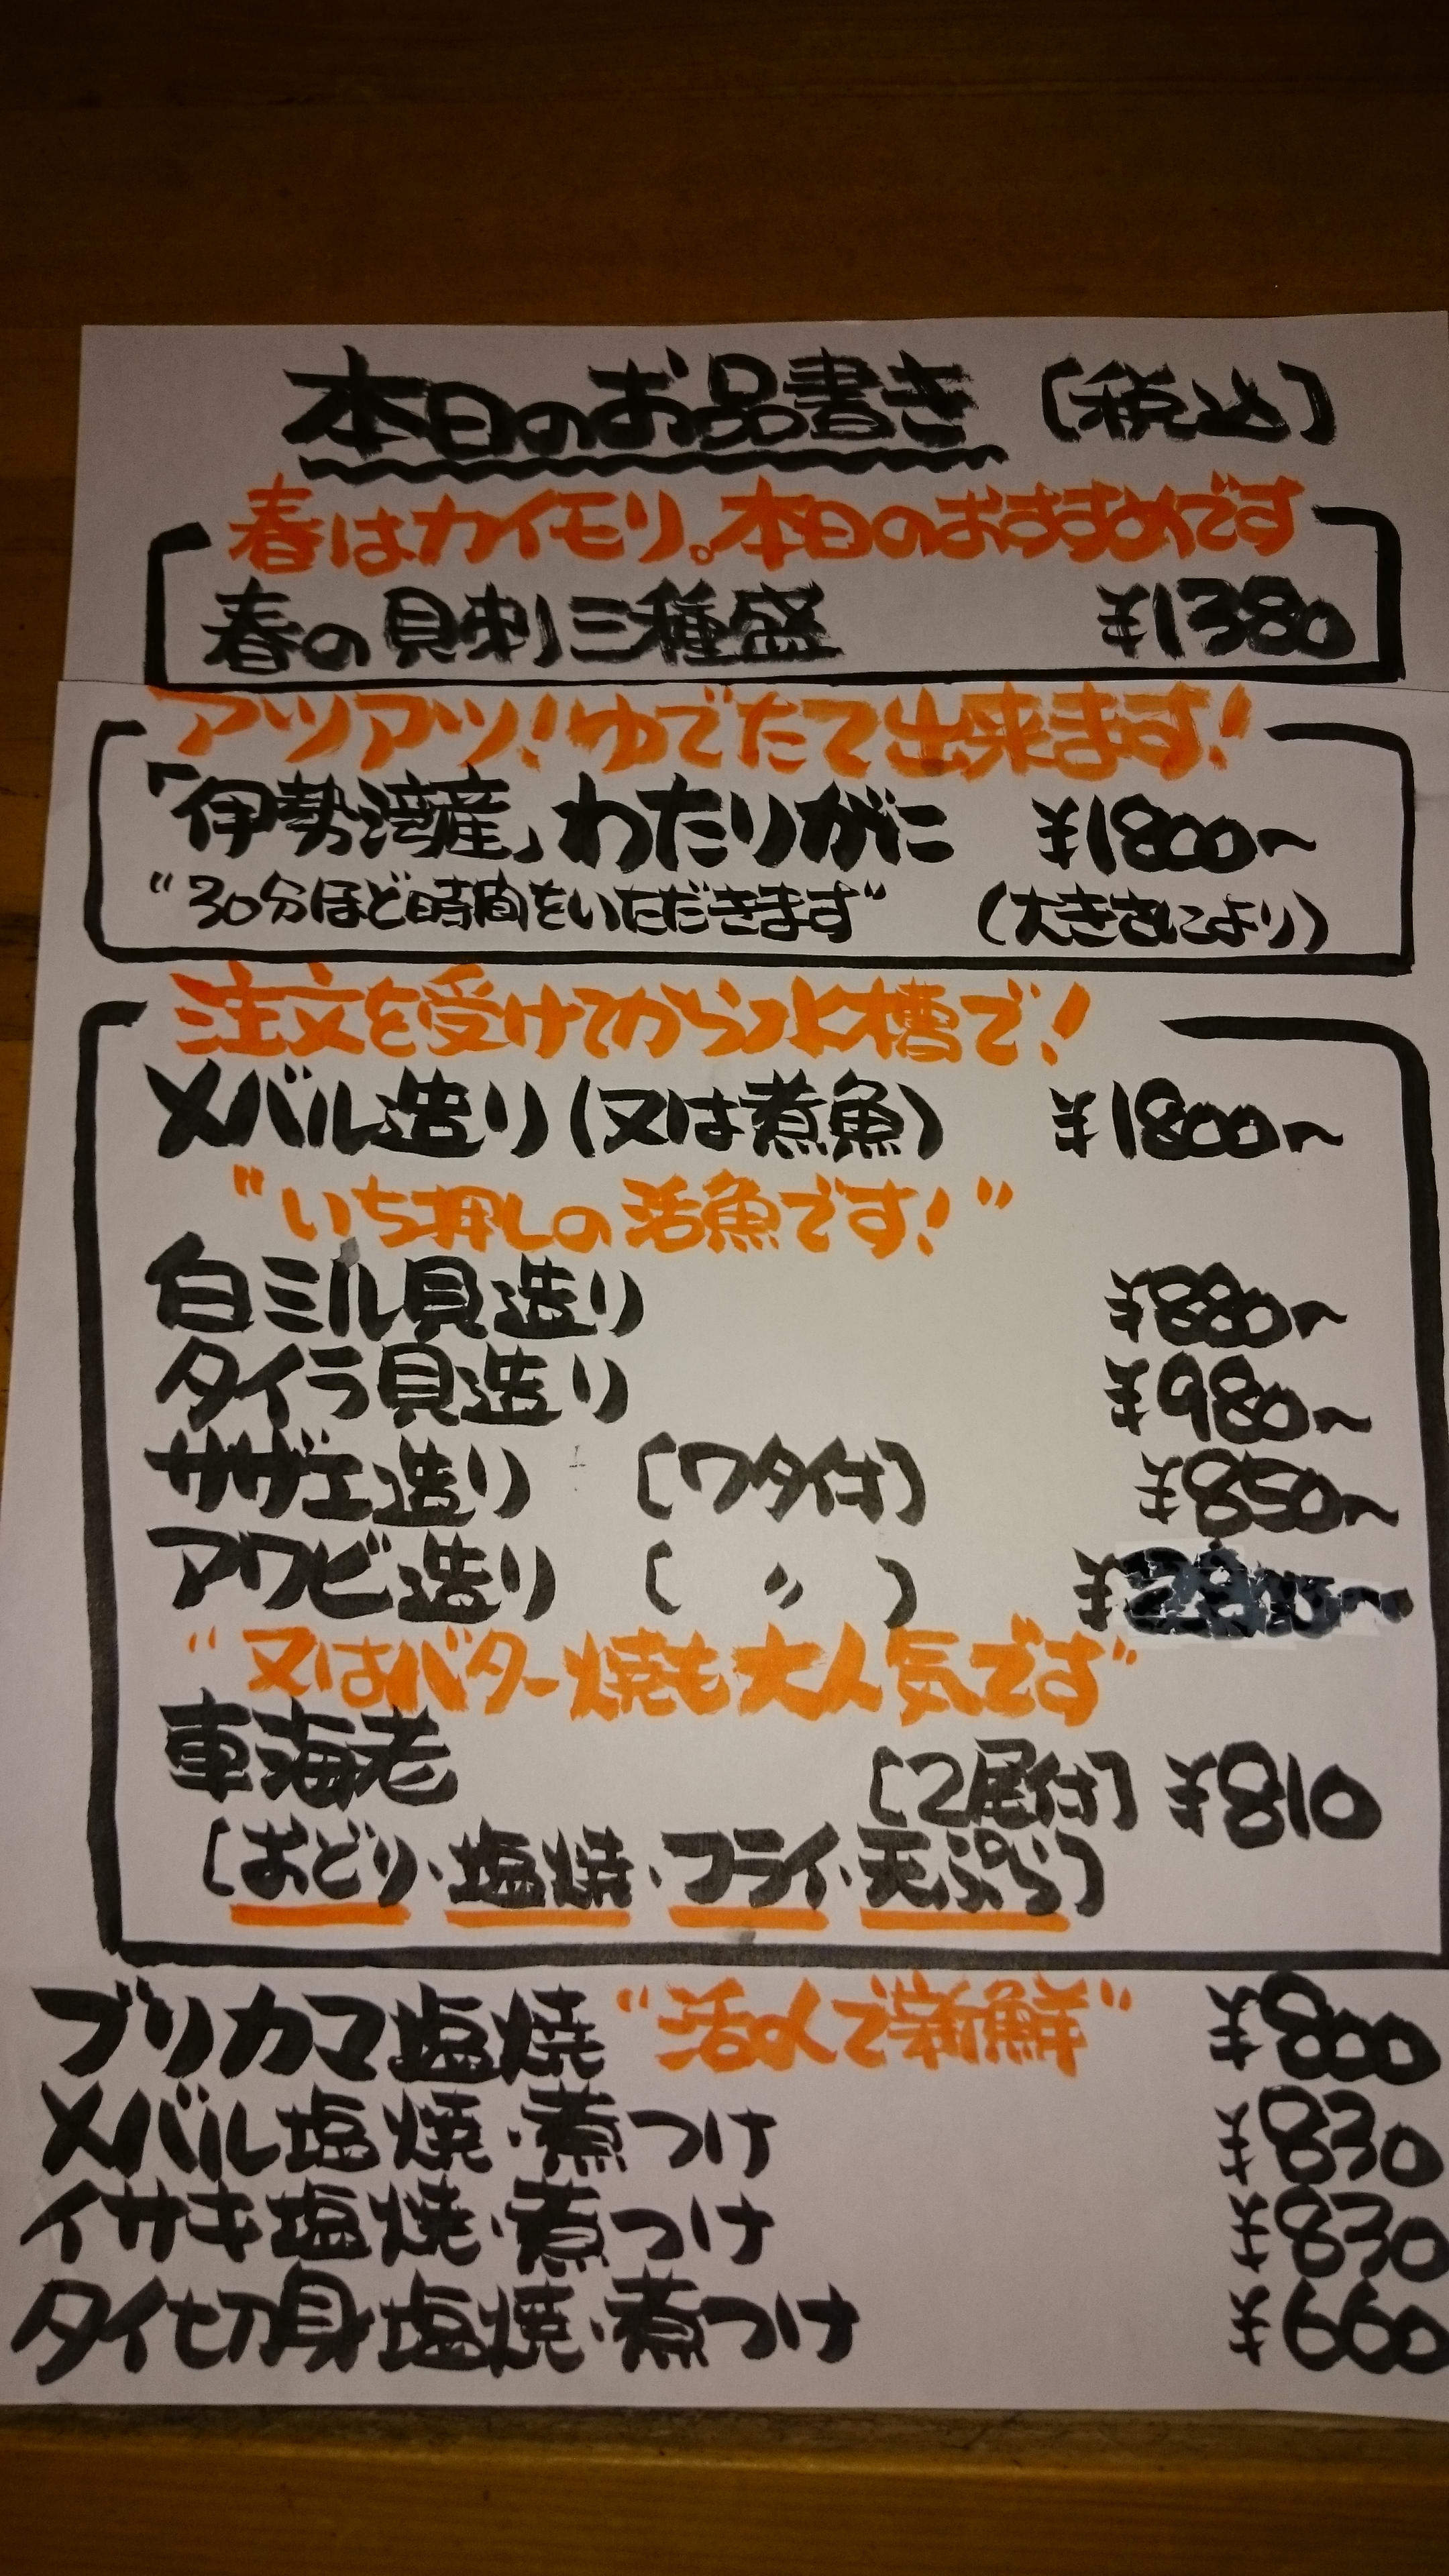 本日のお品書き〔税込〕
春はカイモリ。本日のおすすめです
春の貝刺三種盛 ¥1380
アツアツ!ゆでたて出来ます!
「伊勢湾産」わたりがに ¥1800～
"30分ほど時間をいただきます" (大きさにより)
注文を受けてから水槽で!
メバル造り(又は煮魚) ¥1800～
"いち押しの活魚です!"
白ミル貝造り ¥880～
タイラ貝造り ¥980～
サザエ造り 〔ワタ付〕 ¥850～
アワビ造り 〔 〃 〕 ¥
"又はバター焼も大人気です"
車海老 〔2尾付〕 ¥810
〔おどり・塩焼・フライ・天ぷら〕
ブリカマ塩焼 "活〆で新鮮" ¥800
メバル塩焼・煮つけ ¥830
イサキ塩焼・煮つけ ¥830
タイ切身塩焼・煮つけ ¥660